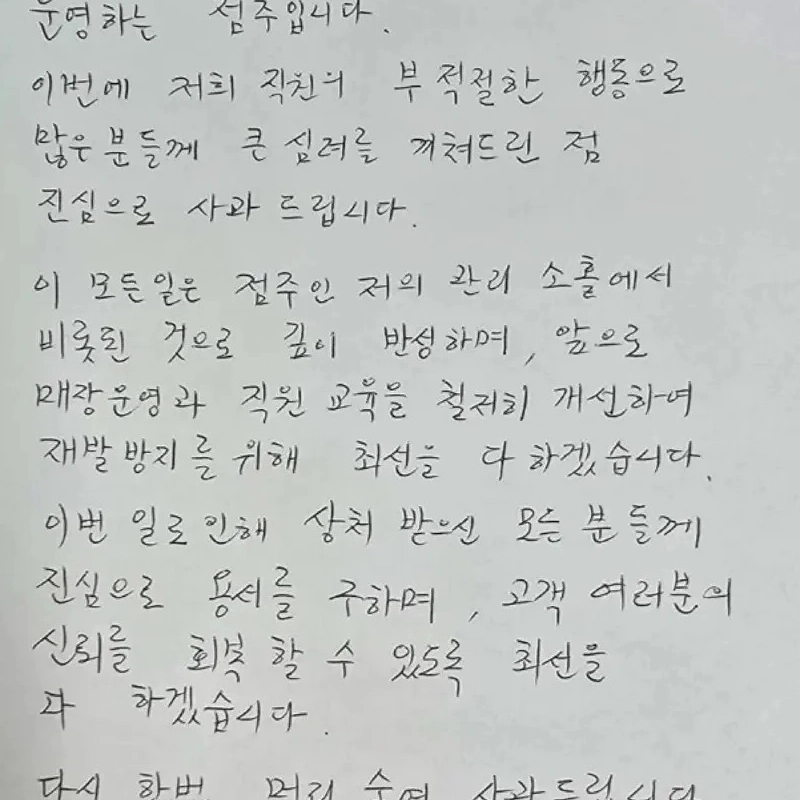 운영하는 점주입니다.
이번에 저희 직원의 부적절한 행동으로
많은 분들께 큰 심려를 끼쳐드린 점
진심으로 사과 드립니다.
이 모든일은 점주인 저의 관리 소홀에서
비롯된 것으로 깊이 반성하며, 앞으로
매장운영과 직원 교육을 철저히 개선하여
재발방지를 위해 최선을 다하겠습니다.
이번 일로 인해 상처 받으신 모든 분들께
진심으로 용서를 구하며, 고객 여러분의
신뢰를 회복 할 수 있도록 최선을
다 하겠습니다.
다시 한번 머리 숙여 사과드립니다